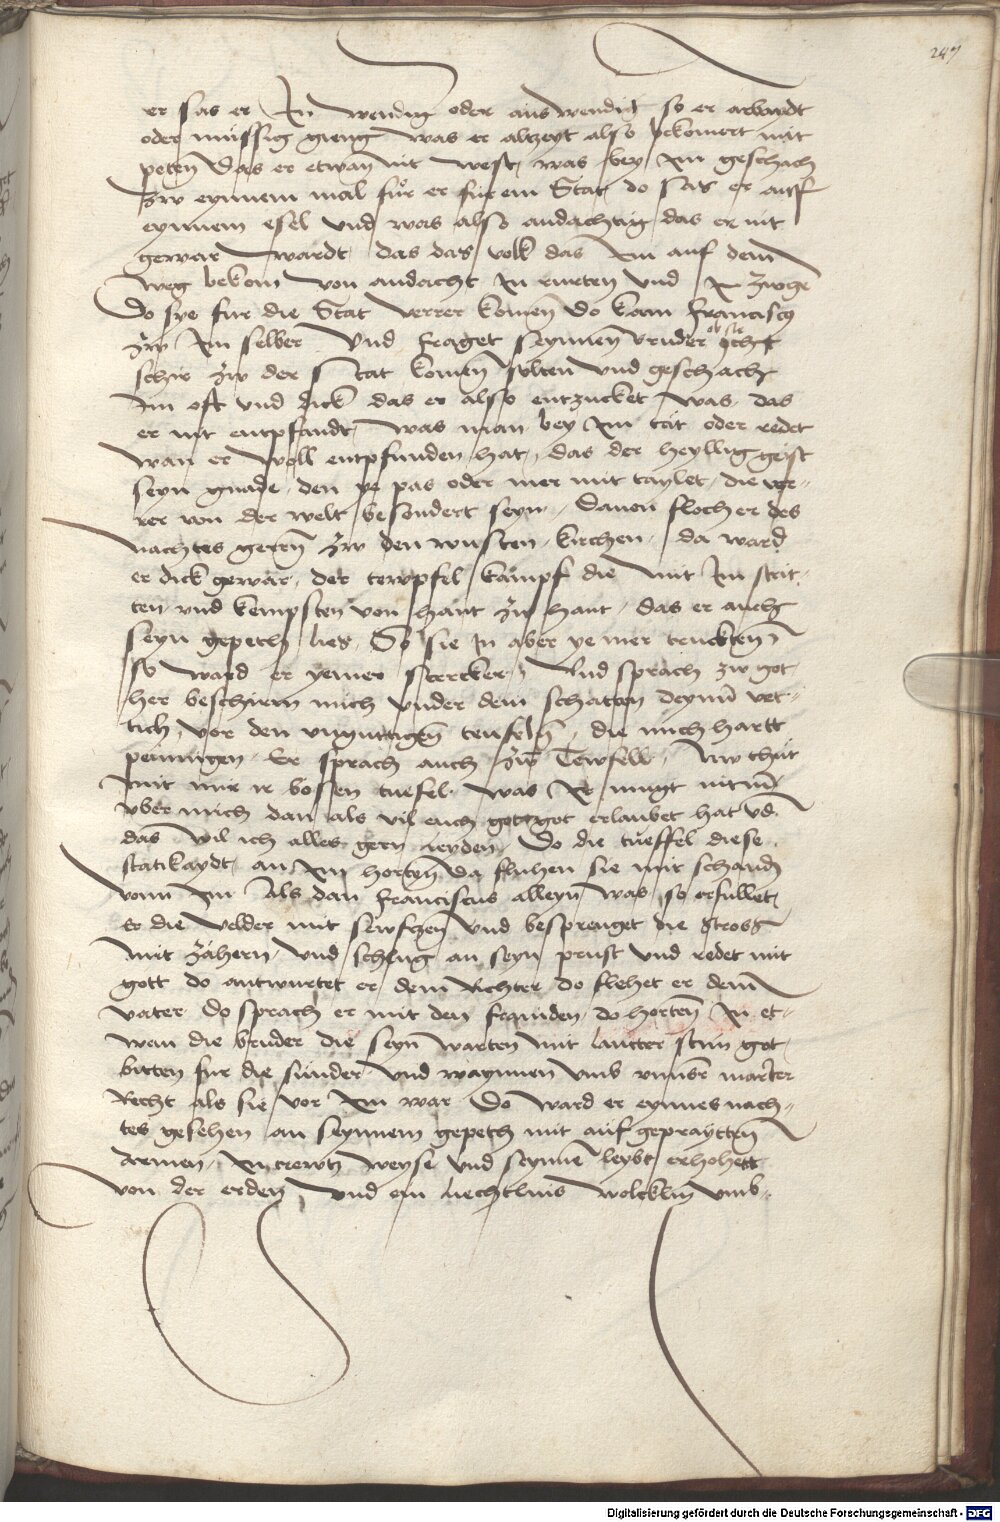 247
er sas er In wendig oder aus wendig so er arbaydt
oder mussig gieng was er altzeyt also bekomert mit
peten das er etwan nit west was bey Im geschach
Zw eynnem mal fur er fur ein Stat do sas er auff
eynnem esel vnd was also andachtig das er nit
gewar wardt das das volk das Im auf dem
weg bekom von andacht In rurten vnd
Do sye fur die Stat verrer komen do kam Franciscus
zw Im selber Vnd fraget seynnen bruder ob sie icht
schir zw der Stat komen solten vnd geschach
Im oft vnd dick das er also entzucket was das
er nit entpfandt was man bey Im tät oder redet
wan er woll entpfunden hat das der heyllig geist
seyn gnade den ye pas oder mer mit taylet die ver-
rer von der welt besondert seyn Dauon floch er des
nachtes geren zw den wusten kirchen da ward
er dick gewar der tewpfel kampf die mit Im strit-
ten vnd kempften von hant zw hant das er auch
seyn gepeth lies So sie In aber ye mer truckten
so ward er yemer stercker Vnd sprach zw got
her beschirm mich vnder dem schaten deynner vet-
tich vor den vngutigen teufeln die mich hartt
peinnigen Er sprach auch zw Tewfell Nw thut
mit mir ir bossen tuefel was Ir mugt nit
vber mich dan als vil euch gott got erlaubet hat vnd
das wil ich alles gern leyden Do die tueffel diese
statikaydt an Im horten da fluhen sie mit schand
vonn Im Als dan Franciscus alleyn was so erfullet
Er die velder mit sewfzen vnd besprenget die stross
mit zähern vnd schlug an seyn prust vnd redet mit
gott do antwurtet er dem Richter do flehet er dem
vater do sprach er mit den frainden do horten In et-
wan die bruder die seyn warten mit lautter stim got
bitten fur die sunder vnd waynnen vmb vnnser marter
Recht als sie vor Im war Do ward er eynnes nach-
tes gesehen an seynnem gepeth mit auf gepraytten
armen In crewtz weyse vnd seynne leybt erhohett
von der erden vnd ein liechtlins wolcklin vmb-
Digitalisierung gefördert durch die Deutsche Forschungsgemeinschaft - DFG